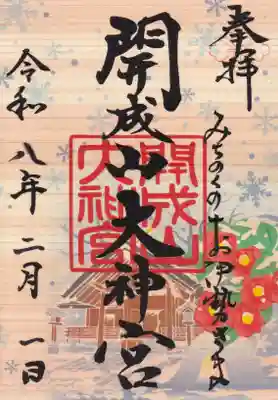 奉拝
みちのくのお伊勢さま
開成山大神宮
開成山
大神宮
令和八年二月一日